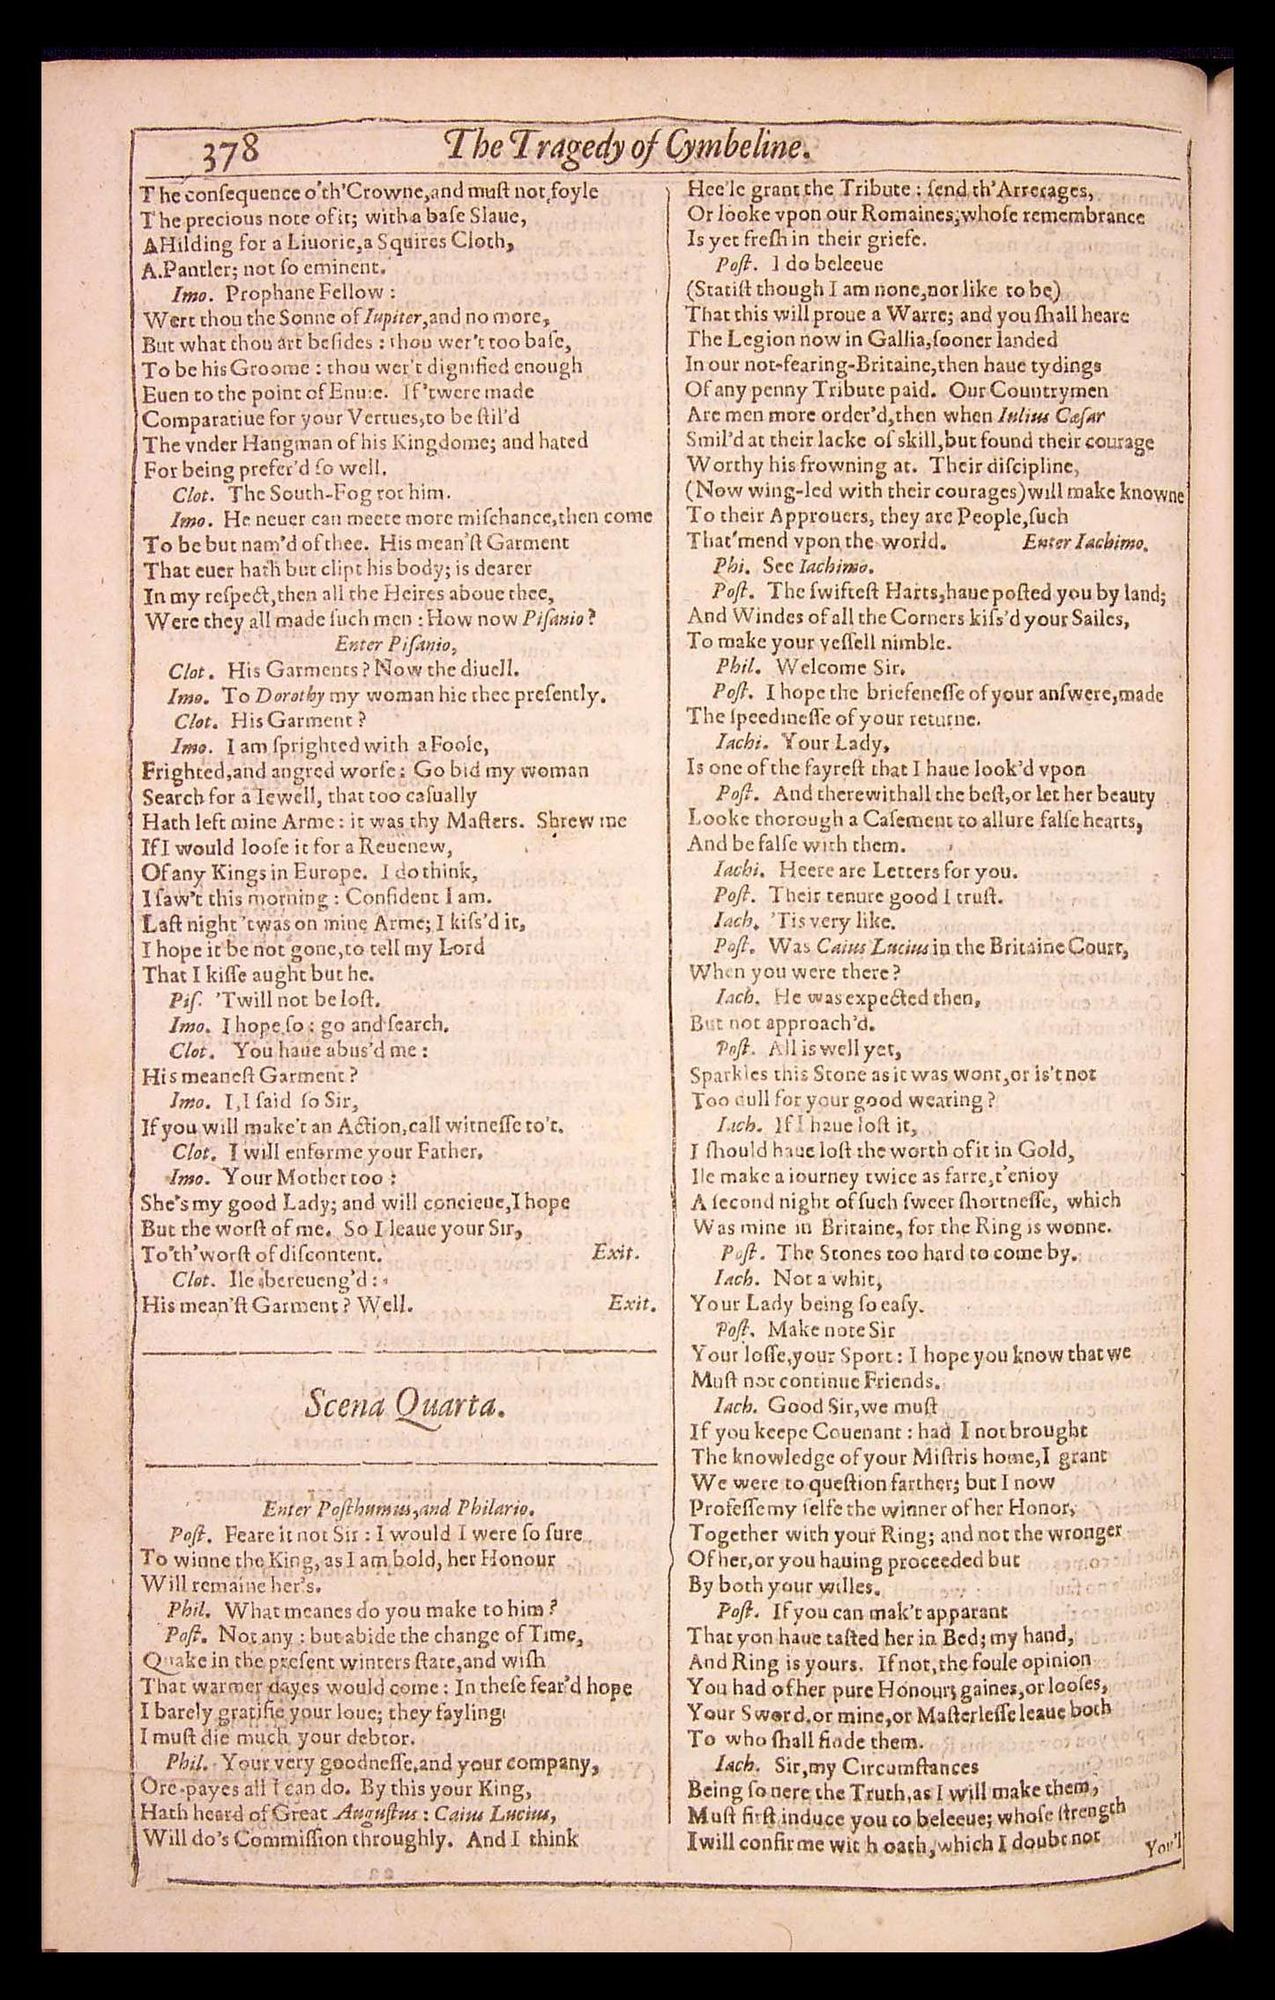 378
The Tragedy of Cymbeline.
The conſequence o'th'Crowne,and muſt not foyle
The precious note of it; with a baſe Slaue,
A Hilding for a Liuorie,a Squires Cloth,
A Pantler; not ſo eminent.
Imo. Prophane Fellow :
Wert thou the Sonne of Iupiter,and no more,
But what thou art beſides : thou wer't too baſe,
To be his Groome : thou wer't dignified enough
Euen to the point of Enuie. If 'twere made
Comparatiue for your Vertues,to be ſtil'd
The vnder Hangman of his Kingdome; and hated
For being prefer'd ſo well.
Clot. The South-Fog rot him.
Imo. He neuer can meete more miſchance,then come
To be but nam'd of thee. His mean'ſt Garment
That euer hath but clipt his body; is dearer
In my reſpect,then all the Heires aboue thee,
Were they all made ſuch men : How now Piſanio ?
Enter Piſanio,
Clot. His Garments? Now the diuell.
Imo. To Dorothy my woman hie thee preſently.
Clot. His Garment ?
Imo. I am ſprighted with a Foole,
Frighted,and angred worſe : Go bid my woman
Search for a Iewell, that too caſually
Hath left mine Arme : it was thy Maſters. Shrew me
If I would looſe it for a Reuenew,
Of any Kings in Europe. I do think,
I ſaw't this morning : Confident I am.
Laſt night 'twas on mine Arme; I kiſs'd it,
I hope it be not gone,to tell my Lord
That I kiſſe aught but he.
Piſ. 'Twill not be loſt.
Imo. I hope ſo : go and ſearch.
Clot. You haue abus'd me :
His meaneſt Garment ?
Imo. I,I ſaid ſo Sir,
If you will make't an Action,call witneſſe to't.
Clot. I will enforme your Father.
Imo. Your Mother too :
She's my good Lady; and will concieue,I hope
But the worſt of me. So I leaue your Sir,
To'th'worſt of diſcontent. Exit.
Clot. Ile be reueng'd :
His mean'ſt Garment ? Well. Exit.
Scena Quarta.
Enter Poſthumus,and Philario.
Poſt. Feare it not Sir : I would I were ſo ſure
To winne the King, as I am bold, her Honour
Will remaine her's.
Phil. What meanes do you make to him ?
Poſt. Not any : but abide the change of Time,
Quake in the preſent winters ſtate,and wiſh
That warmer dayes would come : In theſe fear'd hope
I barely gratifie your loue; they fayling
I muſt die much your debtor.
Phil. Your very goodneſſe,and your company,
Ore-payes all I can do. By this your King,
Hath heard of Great Auguſtus : Caius Lucius,
Will do's Commiſſion throughly. And I think
Hee'le grant the Tribute : ſend th'Arrerages,
Or looke vpon our Romaines,whoſe remembrance
Is yet freſh in their griefe.
Poſt. I do beleeue
(Statiſt though I am none,nor like to be)
That this will proue a Warre; and you ſhall heare
The Legion now in Gallia,ſooner landed
In our not-fearing-Britaine,then haue tydings
Of any penny Tribute paid. Our Countrymen
Are men more order'd,then when Iulius Cæſar
Smil'd at their lacke of skill,but found their courage
Worthy his frowning at. Their diſcipline,
(Now wing-led with their courages)will make knowne
To their Approuers, they are People,ſuch
That'mend vpon the world. Enter Iachimo.
Phi. See Iachimo.
Poſt. The ſwifteſt Harts,haue poſted you by land;
And Windes of all the Corners kiſs'd your Sailes,
To make your veſſell nimble.
Phil. Welcome Sir.
Poſt. I hope the briefeneſſe of your anſwere,made
The ſpeedineſſe of your returne.
Iachi. Your Lady,
Is one of the fayreſt that I haue look'd vpon
Poſt. And therewithall the beſt,or let her beauty
Looke thorough a Caſement to allure falſe hearts,
And be falſe with them.
Iachi. Heere are Letters for you.
Poſt. Their tenure good I truſt.
Iach. 'Tis very like.
Poſt. Was Caius Lucius in the Britaine Court,
When you were there ?
Iach. He was expected then,
But not approach'd.
Poſt. All is well yet,
Sparkles this Stone as it was wont,or is't not
Too dull for your good wearing ?
Iach. If I haue loſt it,
I ſhould haue loſt the worth of it in Gold,
Ile make a iourney twice as farre,t'enioy
A ſecond night of ſuch ſweet ſhortneſſe, which
Was mine in Britaine, for the Ring is wonne.
Poſt. The Stones too hard to come by.
Iach. Not a whit,
Your Lady being ſo eaſy.
Poſt. Make note Sir
Your loſſe,your Sport : I hope you know that we
Muſt not continue Friends.
Iach. Good Sir,we muſt
If you keepe Couenant : had I not brought
The knowledge of your Miſtris home,I grant
We were to queſtion farther; but I now
Profeſſe my ſelfe the winner of her Honor,
Together with your Ring; and not the wronger
Of her,or you hauing proceeded but
By both your willes.
Poſt. If you can mak't apparant
That yon haue taſted her in Bed; my hand,
And Ring is yours. If not,the foule opinion
You had of her pure Honour; gaines,or looſes,
Your Sword,or mine,or Maſterleſſe leaue both
To who ſhall finde them.
Iach. Sir,my Circumſtances
Being ſo nere the Truth,as I will make them,
Muſt firſt induce you to beleeue; whoſe ſtrength
I will confirme with oath,which I doubt not
You'l